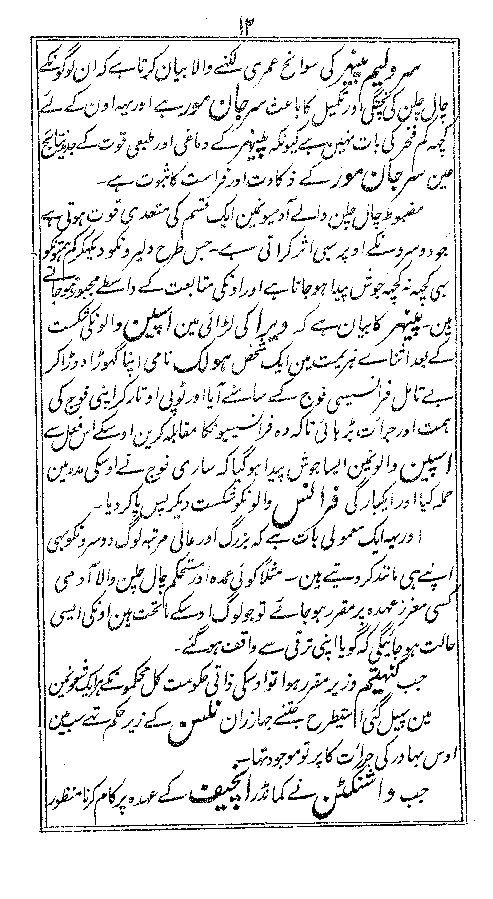 ۱۲
سر ولیم پنیپر کی سوانح عمری لکھنے والا بیان کرتا ہے کہ ان لوگونکے
چال چلن کی پختگی اور تکمیل کا باعث سر جان مور ہے اور یہہ اون کے لئے
کچہہ کم فخر کی بات نہین ہے کیونکہ پنیپر کے دماغی اور طبعی قوت کے جلد پہچاننے
مین سر جان مور کے ذکاوت اور فراست کا ثبوت ہے ۔
مضبوط چال چلن والے آدمیونمین ایک قسم کی متعدی قوت ہوتی ہے
جو دوسرونکے اوپر بہی اثر کراتی ہے ۔ جس طرح دلیرونکو دیکہکر کم ہمتونکو
بہی کچہہ نہ کچہہ جوش پیدا ہو جاتا ہے اور اونکی متابعت کے واسطے مجبور ہو جاتے
ہین ۔ پنیپر کا بیان ہے کہ ویرا کی لڑائی مین اسپین والونکی شکست
کے بعد اثنائے ہزیمت مین ایک شخص ہولک نامی اپنا گہوڑا دوڑا کر
بے تامل فرانسیسی فوج کے سامنے آیا اور ٹوپی اوتار کر اپنی فوج کی
ہمت اور جرائت بڑہائی تاکہ وہ فرانسیسیونکا مقابلہ کرین اوسکے اس فعل سے
اسپین والونمین ایسا جوش پیدا ہوگیا کہ ساری فوج نے اوسکی مدد مین
حملہ کیا اور ایکبارگی فرانس والونکو شکست دیکر پس پا کر دیا ۔
اور یہہ ایک معمولی بات ہے کہ بزرگ اور عالی مرتبہ لوگ دوسرونکو بہی
اپنے ہی مانند کر دیتے ہین ۔ مثلاً کوئی عمدہ اور مستحکم چال چلن والا آدمی
کسی معزز عہدہ پر مقرر ہو جائے تو جو لوگ اوسکے ماتحت ہین اونکی ایسی
حالت ہو جائیگی کہ گویا اپنی ترقی سے واقف ہوگئے ۔
جب کہیتہم وزیر مقرر ہوا تو اوسکی ذاتی حکومت کل محکمونکے ہر ایک شعبونمین
مین پہیل گئی اسیطرح جتنے جہازران نلسن کے زیر حکم تہے سبمین
اوس بہادر کی جرائت کا پرتو موجود تہا ۔
جب واشنگٹن نے کمانڈر انچیف کے عہدہ پر کام کرنا منظور